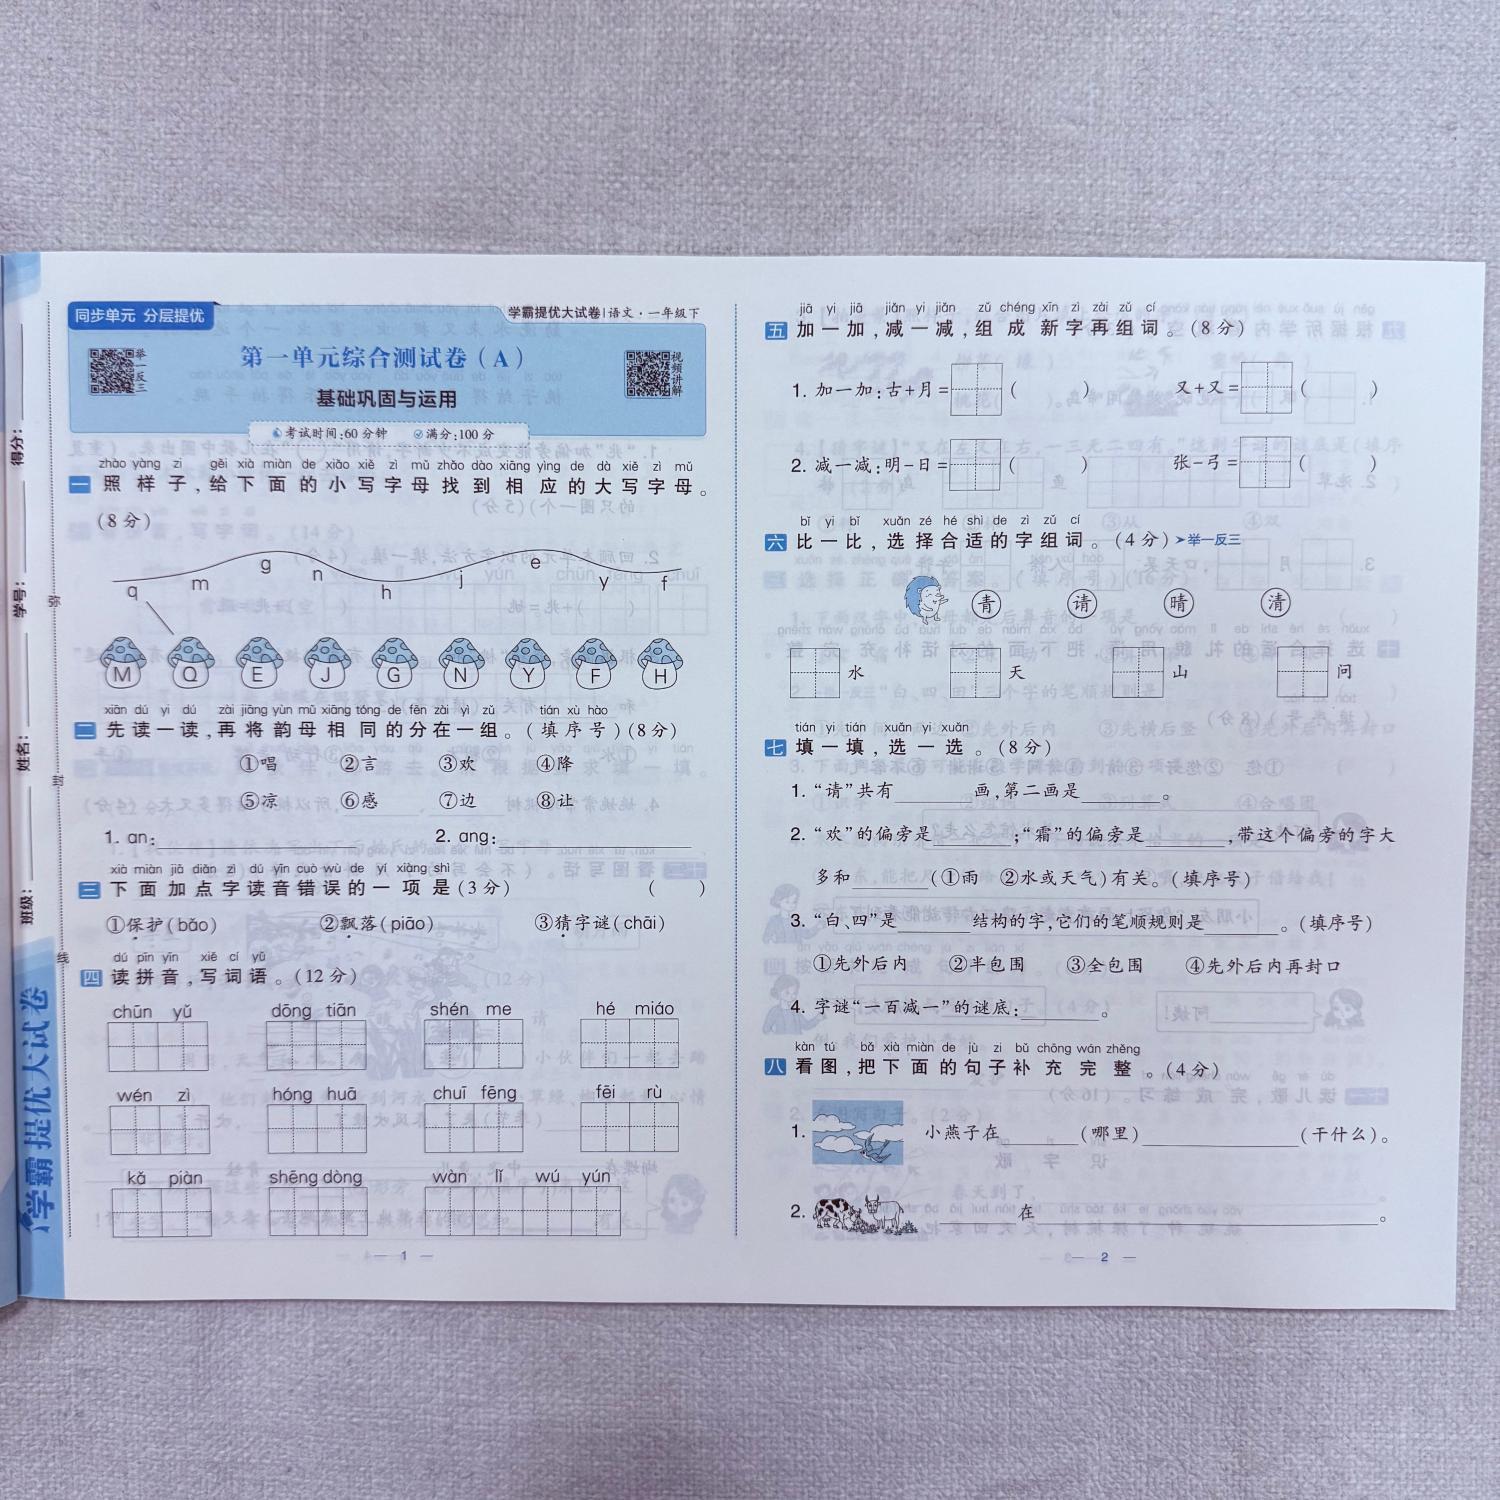 同步单元 分层提优
学霸提优大试卷|语文·一年级下
举一反三
第一单元综合测试卷(A)
视频讲解
基础巩固与运用
考试时间:60分钟 满分:100分
zhào yàng zi gěi xià miàn de xiǎo xiě zì mǔ zhǎo dào xiāng yìng de dà xiě zì mǔ
一 照样子,给下面的小写字母找到相应的大写字母。
(8分)
q m g n h j e y f
M Q E J G N Y F H
xiān dú yi dú zài jiāng yùn mǔ xiāng tóng de fēn zài yì zǔ tián xù hào
二 先读一读,再将韵母相同的分在一组。(填序号)(8分)
①唱 ②言 ③欢 ④降
⑤凉 ⑥感 ⑦边 ⑧让
1. an: 2. ang:
xià miàn jiā diǎn zì dú yīn cuò wù de yí xiàng shì
三 下面加点字读音错误的一项是(3分) ( )
①保护(bǎo) ②飘落(piāo) ③猜字谜(chāi)
dú pīn yīn xiě cí yǔ
四 读拼音,写词语。(12分)
chūn yǔ dōng tiān shén me hé miáo
wén zì hóng huā chuī fēng fēi rù
kǎ piàn shēng dòng wàn lǐ wú yún
— 1 —
jiā yi jiā jiǎn yi jiǎn zǔ chéng xīn zì zài zǔ cí
五 加一加,减一减,组成新字再组词。(8分)
1. 加一加:古+月= ( ) 又+又= ( )
2. 减一减:明-日= ( ) 张-弓= ( )
bǐ yi bǐ xuǎn zé hé shì de zì zǔ cí
六 比一比,选择合适的字组词。(4分)➤举一反三
青 请 晴 清
水 天 山 问
tián yi tián xuǎn yi xuǎn
七 填一填,选一选。(8分)
1. “请”共有________画,第二画是________。
2. “欢”的偏旁是________;“霜”的偏旁是________,带这个偏旁的字大
多和________(①雨 ②水或天气)有关。(填序号)
3. “白、四”是________结构的字,它们的笔顺规则是________。(填序号)
①先外后内 ②半包围 ③全包围 ④先外后内再封口
4. 字谜“一百减一”的谜底:________。
kàn tú bǎ xià miàn de jù zi bǔ chōng wán zhěng
八 看图,把下面的句子补充完整。(4分)
1. 小燕子在________(哪里)________________(干什么)。
2. ____________在________________________________。
— 2 —
得分:
学号:
姓名:
班级:
弥
封
线
学霸提优大试卷